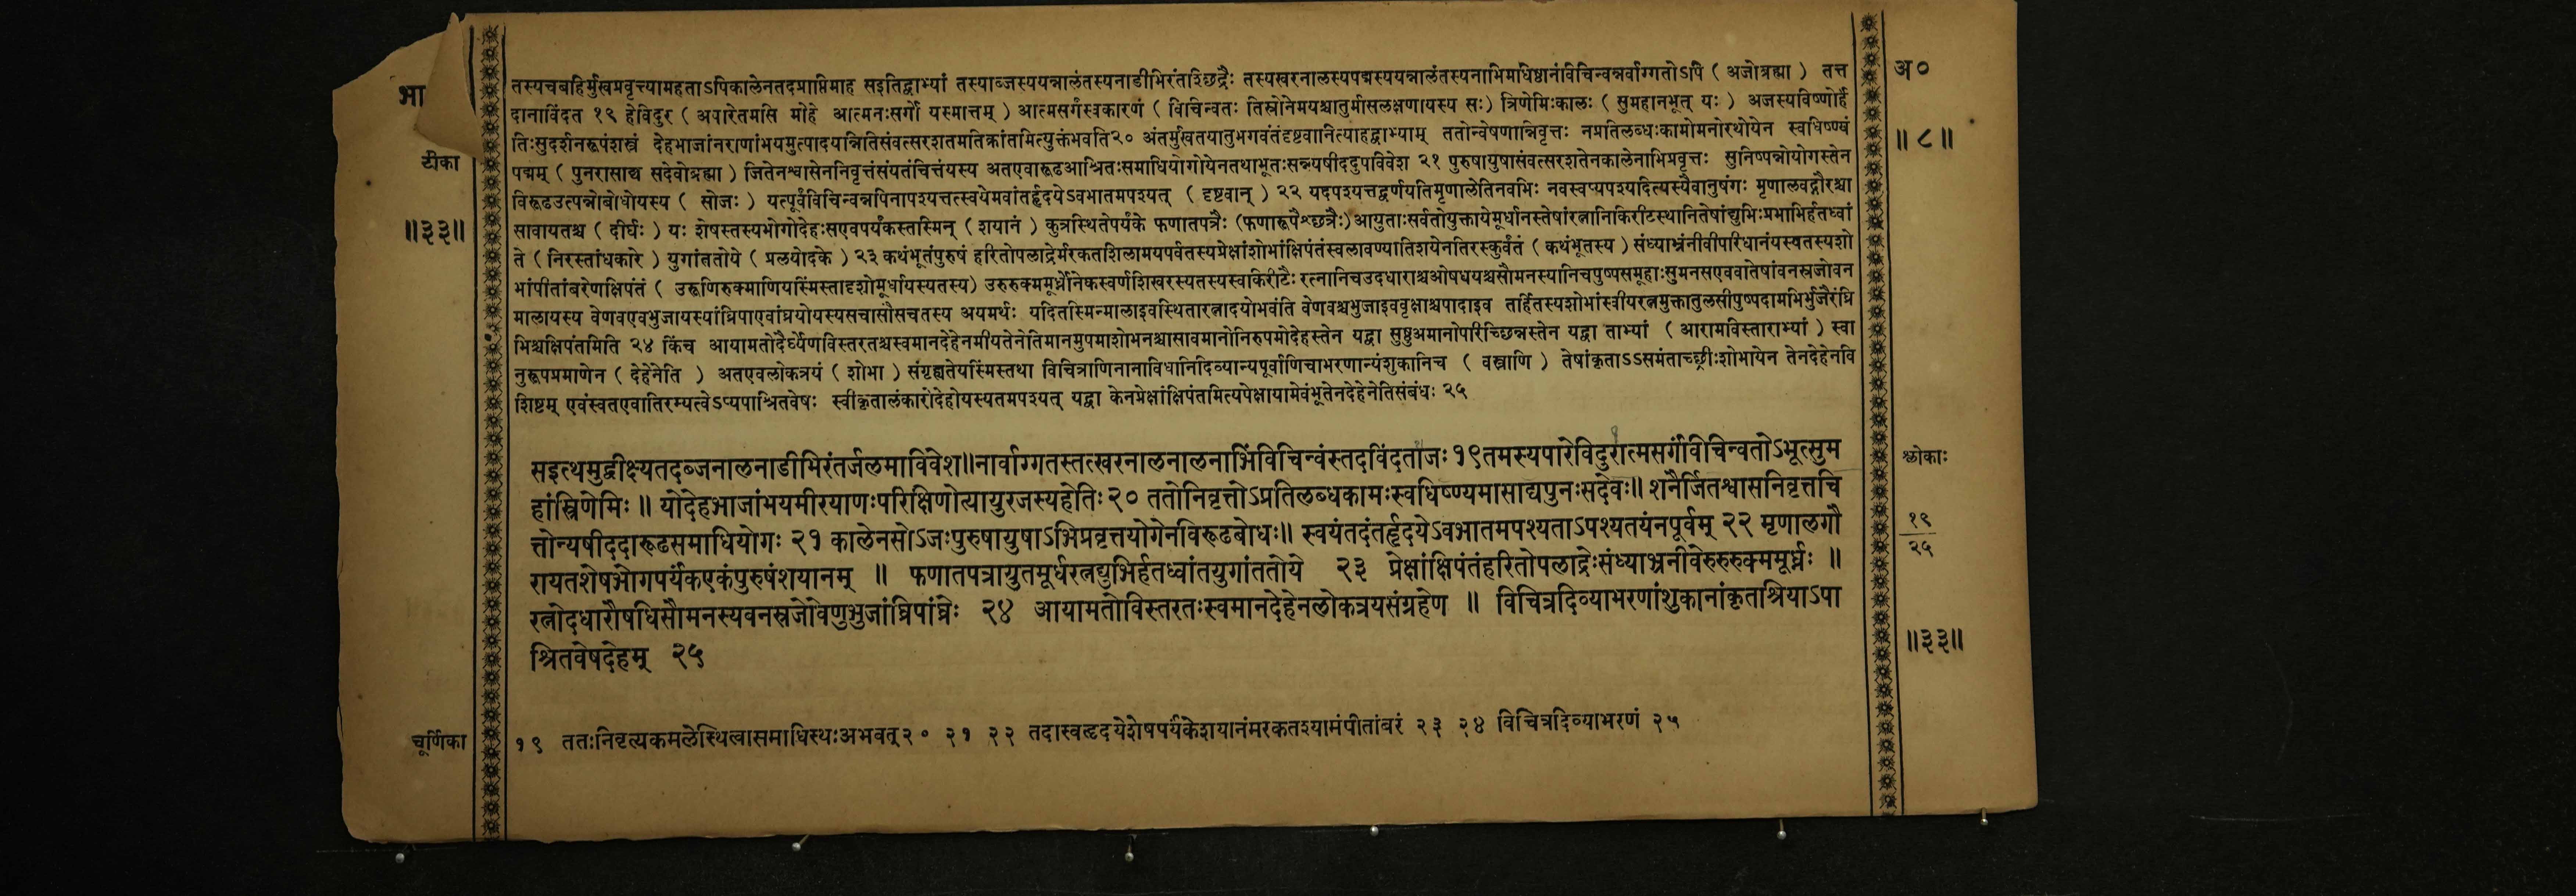 भा
टीका
॥३३॥
तस्यचबहिर्मुखप्रवृत्त्यामहताऽपिकालेनतदप्राप्तिमाह सइतिद्वाभ्यां तस्याब्जस्ययन्नालंतस्यनाडीभिरंतश्छिद्रैः तस्यखरनालस्यपद्मस्ययन्नालंतस्यनाभिमधिष्ठानंविचिन्वन्नर्वाग्गतोऽपि ( अजोब्रह्मा ) तत्त
दानाविंदत १९ हेविदुर ( अपारेतमसि मोहे आत्मनःसर्गो यस्मात्तम् ) आत्मसर्गंस्वकारणं ( विचिन्वतः तिस्रोनेमयश्चातुर्मासलक्षणायस्य सः) त्रिणेमिःकालः ( सुमहानभूत् यः ) अजस्यविष्णोर्हे
तिःसुदर्शनरूपंशस्त्रं देहभाजांनराणांभयमुत्पादयन्नितिसंवत्सरशतमतिक्रांतमित्युक्तंभवति२० अंतर्मुखतयातुभगवंतंदृष्टवानित्याहद्वाभ्याम् ततोन्वेषणान्निवृत्तः नप्रतिलब्धःकामोमनोरथोयेन स्वधिष्ण्यं
पद्मम् ( पुनरासाद्य सदेवोब्रह्मा ) जितेनश्वासेननिवृत्तंसंयतंचित्तंयस्य अतएवारूढआश्रितःसमाधियोगोयेनतथाभूतःसन्न्यषीददुपविवेश २१ पुरुषायुषासंवत्सरशतेनकालेनाभिप्रवृत्तः सुनिष्पन्नोयोगस्तेन
विरूढउत्पन्नोबोधोयस्य ( सोजः ) यत्पूर्वंविचिन्वन्नपिनापश्यत्तत्स्वयमेवांतर्हृदयेऽवभातमपश्यत् ( दृष्टवान् ) २२ यदपश्यत्तद्वर्णयतिमृणालेतिनवभिः नवस्वप्यपश्यदित्यस्यैवानुषंगः मृणालवद्गौरश्चा
सावायतश्च ( दीर्घः ) यः शेषस्तस्यभोगोदेहःसएवपर्यंकस्तस्मिन् ( शयानं ) कुत्रस्थितेपर्यंके फणातपत्रैः (फणारूपैश्छत्रैः)आयुताःसर्वतोयुक्तायेमूर्धानस्तेषांरत्नानिकिरीटस्थानितेषांद्युभिःप्रभाभिर्हतध्वां
ते ( निरस्तांधकारे ) युगांततोये ( प्रलयोदके ) २३ कथंभूतंपुरुषं हरितोपलाद्रेर्मरकतशिलामयपर्वतस्यप्रेक्षांशोभांक्षिपंतंस्वलावण्यातिशयेनतिरस्कुर्वंतं ( कथंभूतस्य ) संध्याभ्रंनीवीपरिधानंयस्यतस्यशो
भांपीतांबरेणक्षिपंतं ( उरूणिरुक्माणियस्मिंस्तादृशोमूर्धायस्यतस्य) उरुरुक्ममूर्ध्नोनेकस्वर्णशिखरस्यतस्यस्वकिरीटैः रत्नानिचउदधाराश्चओषधयश्चसौमनस्यानिचपुष्पसमूहाःसुमनसएववातेषांवनस्रजोवन
मालायस्य वेणवएवभुजायस्यांघ्रिपाएवांघ्रयोयस्यसचासौसचतस्य अयमर्थः यदितस्मिन्मालाइवस्थितारत्नादयोभवंति वेणवश्चभुजाइववृक्षाश्चपादाइव तर्हितस्यशोभांस्वीयरत्नमुक्तातुलसीपुष्पदामभिर्भुजैरंघ्रि
भिश्चक्षिपंतमिति २४ किंच आयामतोदैर्घ्येणविस्तरतश्चस्वमानदेहेनमीयतेनेतिमानमुपमाशोभनश्चासावमानोनिरुपमोदेहस्तेन यद्वा सुष्ठुअमानोपरिच्छिन्नस्तेन यद्वा ताभ्यां ( आरामविस्ताराभ्यां ) स्वा
नुरूपप्रमाणेन ( देहेनेति ) अतएवलोकत्रयं ( शोभा ) संगृह्यतेयस्मिंस्तथा विचित्राणिनानाविधानिदिव्यान्यपूर्वाणिचाभरणान्यंशुकानिच ( वस्त्राणि ) तेषांकृताऽऽसमंताच्छ्रीःशोभायेन तेनदेहेनवि
शिष्टम् एवंस्वतएवातिरम्यत्वेऽप्यपाश्रितवेषः स्वीकृतालंकारोदेहोयस्यतमपश्यत् यद्वा केनप्रेक्षांक्षिपंतमित्यपेक्षायामेवंभूतेनदेहेनेतिसंबंधः २५
सइत्थमुद्वीक्ष्यतदब्जनालनाडीभिरंतर्जलमाविवेश॥नार्वाग्गतस्तत्खरनालनालनाभिंविचिन्वंस्तदविंदताजः १९तमस्यपारेविदुरात्मसर्गंविचिन्वतोऽभूत्सुम
हांस्त्रिणेमिः ॥ योदेहभाजांभयमीरयाणःपरिक्षिणोत्यायुरजस्यहेतिः २० ततोनिवृत्तोऽप्रतिलब्धकामःस्वधिष्ण्यमासाद्यपुनःसदेवः॥ शनैर्जितश्वासनिवृत्तचि
त्तोन्यषीददारूढसमाधियोगः २१ कालेनसोऽजःपुरुषायुषाऽभिप्रवृत्तयोगेनविरूढबोधः॥ स्वयंतदंतर्हृदयेऽवभातमपश्यताऽपश्यतयंनपूर्वम् २२ मृणालगौ
रायतशेषभोगपर्यंकएकंपुरुषंशयानम् ॥ फणातपत्रायुतमूर्धरत्नद्युभिर्हतध्वांतयुगांततोये २३ प्रेक्षांक्षिपंतंहरितोपलाद्रेःसंध्याभ्रनीवेरुरुरुक्ममूर्ध्नः ॥
रत्नोदधारौषधिसौमनस्यवनस्रजोवेणुभुजांघ्रिपांघ्रेः २४ आयामतोविस्तरतःस्वमानदेहेनलोकत्रयसंग्रहेण ॥ विचित्रदिव्याभरणांशुकानांकृतश्रियाऽपा
श्रितवेषदेहम् २५
चूर्णिका
१९ ततःनिवृत्यकमलेस्थित्वासमाधिस्थःअभवत्२० २१ २२ तदास्वहृदयेशेषपर्यंकेशयानंमरकतश्यामंपीतांबरं २३ २४ विचित्रदिव्याभरणं २५
अ०
॥ ८ ॥
श्लोकाः
१९
२५
॥३३॥